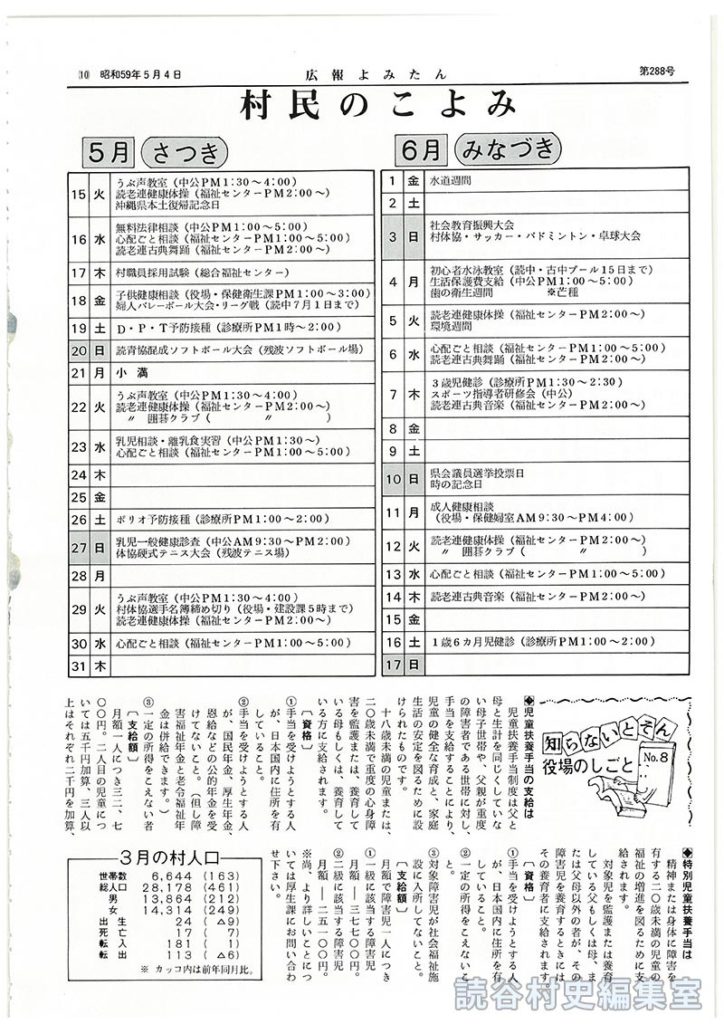 ⑩ 昭和59年5月4日
広報よみたん
第288号
村民のこよみ
5月 さつき
15 火 うぶ声教室（中公PM1:30〜4:00）
読老連健康体操（福祉センターPM2:00〜）
沖縄県本土復帰記念日
16 水 無料法律相談（中公PM1:00〜5:00）
心配ごと相談（福祉センターPM1:00〜5:00）
読老連古典舞踊（福祉センターPM2:00〜）
17 木 村職員採用試験（総合福祉センター）
18 金 子供健康相談（役場・保健衛生課PM1:00〜3:00）
婦人バレーボール大会・リーグ戦（読中7月1日まで）
19 土 D・P・T予防接種（診療所PM1時〜2:00）
20 日 読青協混成ソフトボール大会（残波ソフトボール場）
21 月 小満
22 火 うぶ声教室（中公PM1:30〜4:00）
読老連健康体操（福祉センターPM2:00〜）
〃 囲碁クラブ（ 〃 ）
23 水 乳児相談・離乳食実習（中公PM1:30〜）
心配ごと相談（福祉センターPM1:00〜5:00）
24 木
25 金
26 土 ポリオ予防接種（診療所PM1:00〜2:00）
27 日 乳児一般健康診査（中公AM9:30〜PM2:00）
体協硬式テニス大会（残波テニス場）
28 月
29 火 うぶ声教室（中公PM1:30〜4:00）
村体協選手名簿締め切り（役場・建設課5時まで）
読老連健康体操（福祉センターPM2:00〜）
30 水 心配ごと相談（福祉センターPM1:00〜5:00）
31 木
6月 みなづき
1 金 水道週間
2 土
3 日 社会教育振興大会
村体協・サッカー・バドミントン・卓球大会
4 月 初心者水泳教室（読中・古中プール15日まで）
生活保護費支給（中公PM1:00〜5:00）
歯の衛生週間 ※芒種
5 火 読老連健康体操（福祉センターPM2:00〜）
環境週間
6 水 心配ごと相談（福祉センターPM1:00〜5:00）
読老連古典舞踊（福祉センターPM2:00〜）
7 木 3歳児健診（診療所PM1:30〜2:30）
スポーツ指導者研修会（中公）
読老連古典音楽（福祉センターPM2:00〜）
8 金
9 土
10 日 県会議員選挙投票日
時の記念日
11 月 成人健康相談
（役場・保健婦室AM9:30〜PM4:00）
12 火 読老連健康体操（福祉センターPM2:00〜）
〃 囲碁クラブ（ 〃 ）
13 水 心配ごと相談（福祉センターPM1:00〜5:00）
14 木 読老連古典音楽（福祉センターPM2:00〜）
15 金
16 土 1歳6カ月児健診（診療所PM1:00〜2:00）
17 日
知らないとそん
役場のしごと
No.8
◆児童扶養手当の支給は
児童扶養手当制度は父と
母と生計を同じくしていな
い母子世帯や、父親が重度
の障害者である世帯に対し、
手当を支給することにより、
児童の健全な育成と、家庭
生活の安定を図るために設
けられたものです。
十八歳未満の児童または、
二〇歳未満で重度の心身障
害を監護または、養育して
いる母もしくは、養育して
いる方に支給されます。
〔資格〕
①手当を受けようとする人
が、日本国内に住所を有
していること。
②手当を受けようとする人
が、国民年金、厚生年金、
恩給などの公的年金を受
けてないこと。（但し障
害福祉年金と老令福祉年
金は併給できます。）
③一定の所得をこえない者
〔支給額〕
月額一人につき三二、七
〇〇円。二人目の児童につ
いては五千円加算、三人以
上はそれぞれ二千円を加算、
◆特別児童扶養手当は
精神または身体に障害を
有する二〇歳未満の児童の
福祉の増進を図るために支
給されます。
対象児を監護または養育
している父もしくは母、ま
たは父母以外の者が、その
障害児を養育するときには
その養育者に支給されます。
〔資格〕
①手当を受けようとする人
が、日本国内に住所を有
していること。
②一定の所得をこえないこ
と。
③対象障害児が社会福祉施
設に入所してないこと。
〔支給額〕
月額で障害児一人につき
①一級に該当する障害児
月額──三七、七〇〇円。
②二級に該当する障害児
月額──二五、一〇〇円。
※尚、より詳しいことにつ
いては厚生課にお問い合わ
せ下さい。
3月の村人口
世帯数 6,644（163）
総人口 28,178（461）
男 13,864（212）
女 14,314（249）
出生 24（△9）
死亡 17（7）
転入 181（1）
転出 113（△6）
※カッコ内は前年同月比。
読谷村史編集室